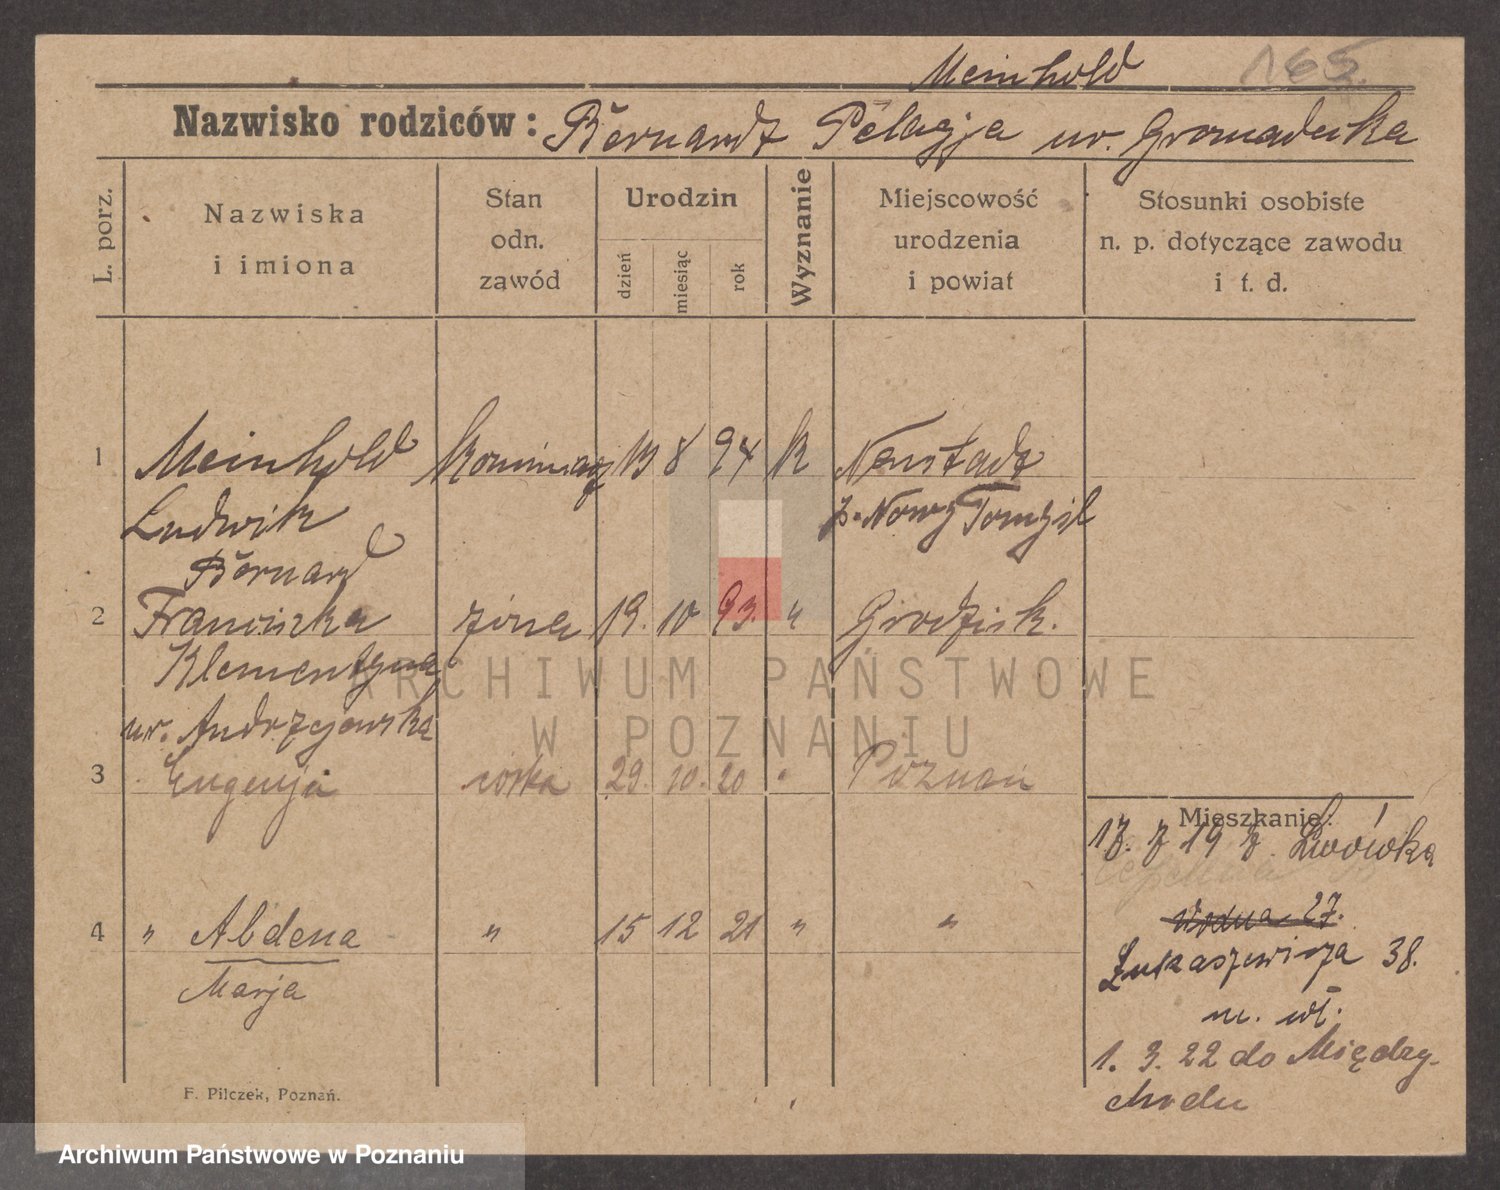 Meinhold 165.
Nazwisko rodziców: Bernardt Pelagja ur. Gromadecka
L. porz.
Nazwiska
i imiona
Stan
odn.
zawód
Urodzin
dzień
miesiąc
rok
Wyznanie
Miejscowość
urodzenia
i powiat
Stosunki osobiste
n. p. dotyczące zawodu
i t. d.
1 Meinhold kominiarz 13 8 94 k Neustadt
Ludwik p. Nowy Tomyśl
Bernard
2 Franciszka żona 19. 10 93. " Grodzisk.
Klementyna
ur. Andrzejewska
3 Eugenja córka 29. 10. 20 " Poznań
Mieszkanie:
z Lwówka
Wodna 27.
4 " Aldena " 15 12 21 " "
Marja
Łukaszewicza 38.
m. wł.
1. 3. 22 do Między-
chodu
F. Pilczek, Poznań.
ARCHIWUM PAŃSTWOWE
W POZNANIU
Archiwum Państwowe w Poznaniu